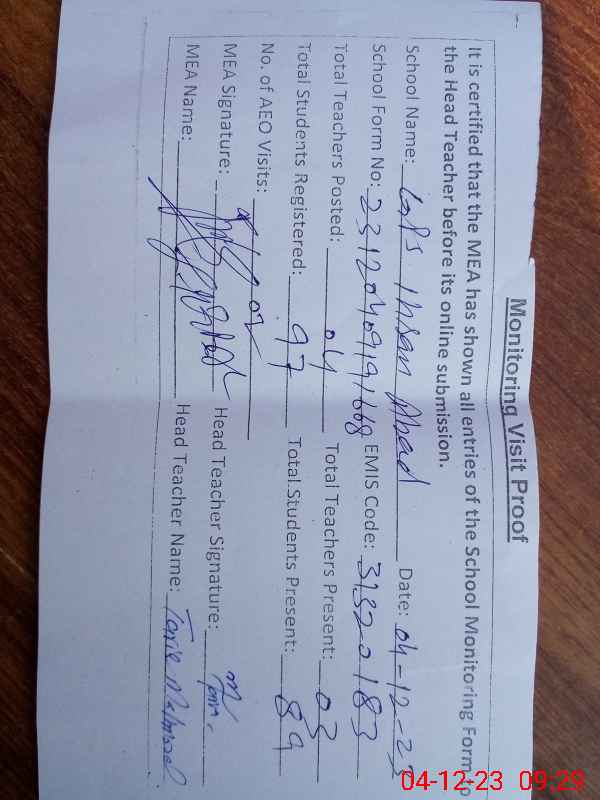 Monitoring Visit Proof
It is certified that the MEA has shown all entries of the School Monitoring Form to
the Head Teacher before its online submission.
School Name: GPS Ihsan Abad Date: 04-12-23
School Form No: EMIS Code: 31320183
Total Teachers Posted: 04 Total Teachers Present: 03
Total Students Registered: 97 Total Students Present: 89
No. of AEO Visits: 02
MEA Signature: Head Teacher Signature:
MEA Name: Head Teacher Name:
04-12-23 09:29